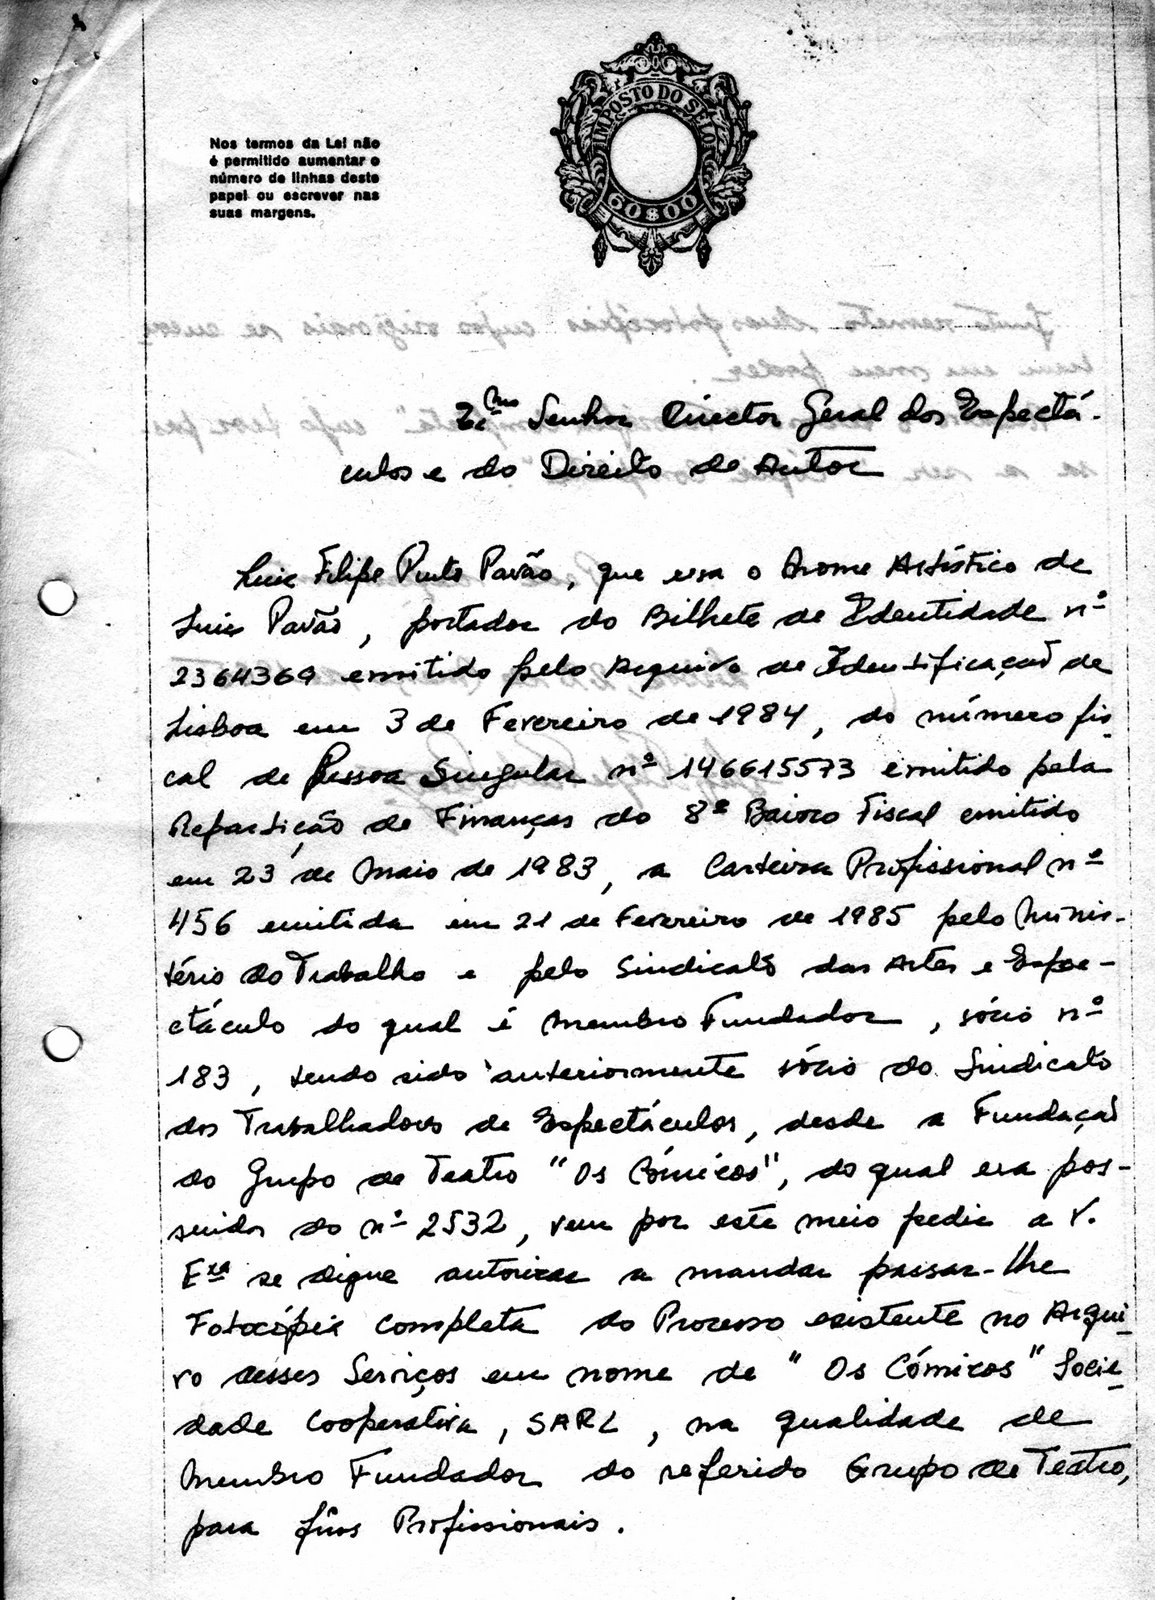 Nos termos da Lei não
é permitido aumentar o
número de linhas deste
papel ou escrever nas
suas margens.
IMPOSTO DO SELO
60$00
Junto remeto duas fotocópias cujos originais se encon
tram em meu poder.
Exmo Senhor Director Geral dos Espectá-
culos e do Direito de Autor
Luis Filipe Pinto Pavão, que usa o Nome Artístico de
Luis Pavão, portador do Bilhete de Identidade nº
2364369 emitido pelo Arquivo de Identificação de
Lisboa em 3 de Fevereiro de 1984, do número fis-
cal de Pessoa Singular nº 146615573 emitido pela
Repartição de Finanças do 8º Bairro Fiscal emitido
em 23 de Maio de 1983, a Carteira Profissional nº
456 emitida em 21 de Fevereiro de 1985 pelo Minis-
tério do Trabalho e pelo Sindicato das Artes e Espe-
ctáculo do qual é Membro Fundador, sócio nº
183, tendo sido anteriormente sócio do Sindicato
dos Trabalhadores de Espectáculos, desde a Fundação
do Grupo de Teatro "Os Cómicos", do qual era pos-
suidor do nº 2532, vem por este meio pedir a V.
Exa se digne autorizar a mandar passar-lhe
Fotocópia completa do Processo existente no Arqui-
vo desses Serviços em nome de "Os Cómicos" Socie-
dade Cooperativa, SARL, na qualidade de
Membro Fundador do referido Grupo de Teatro,
para fins Profissionais.